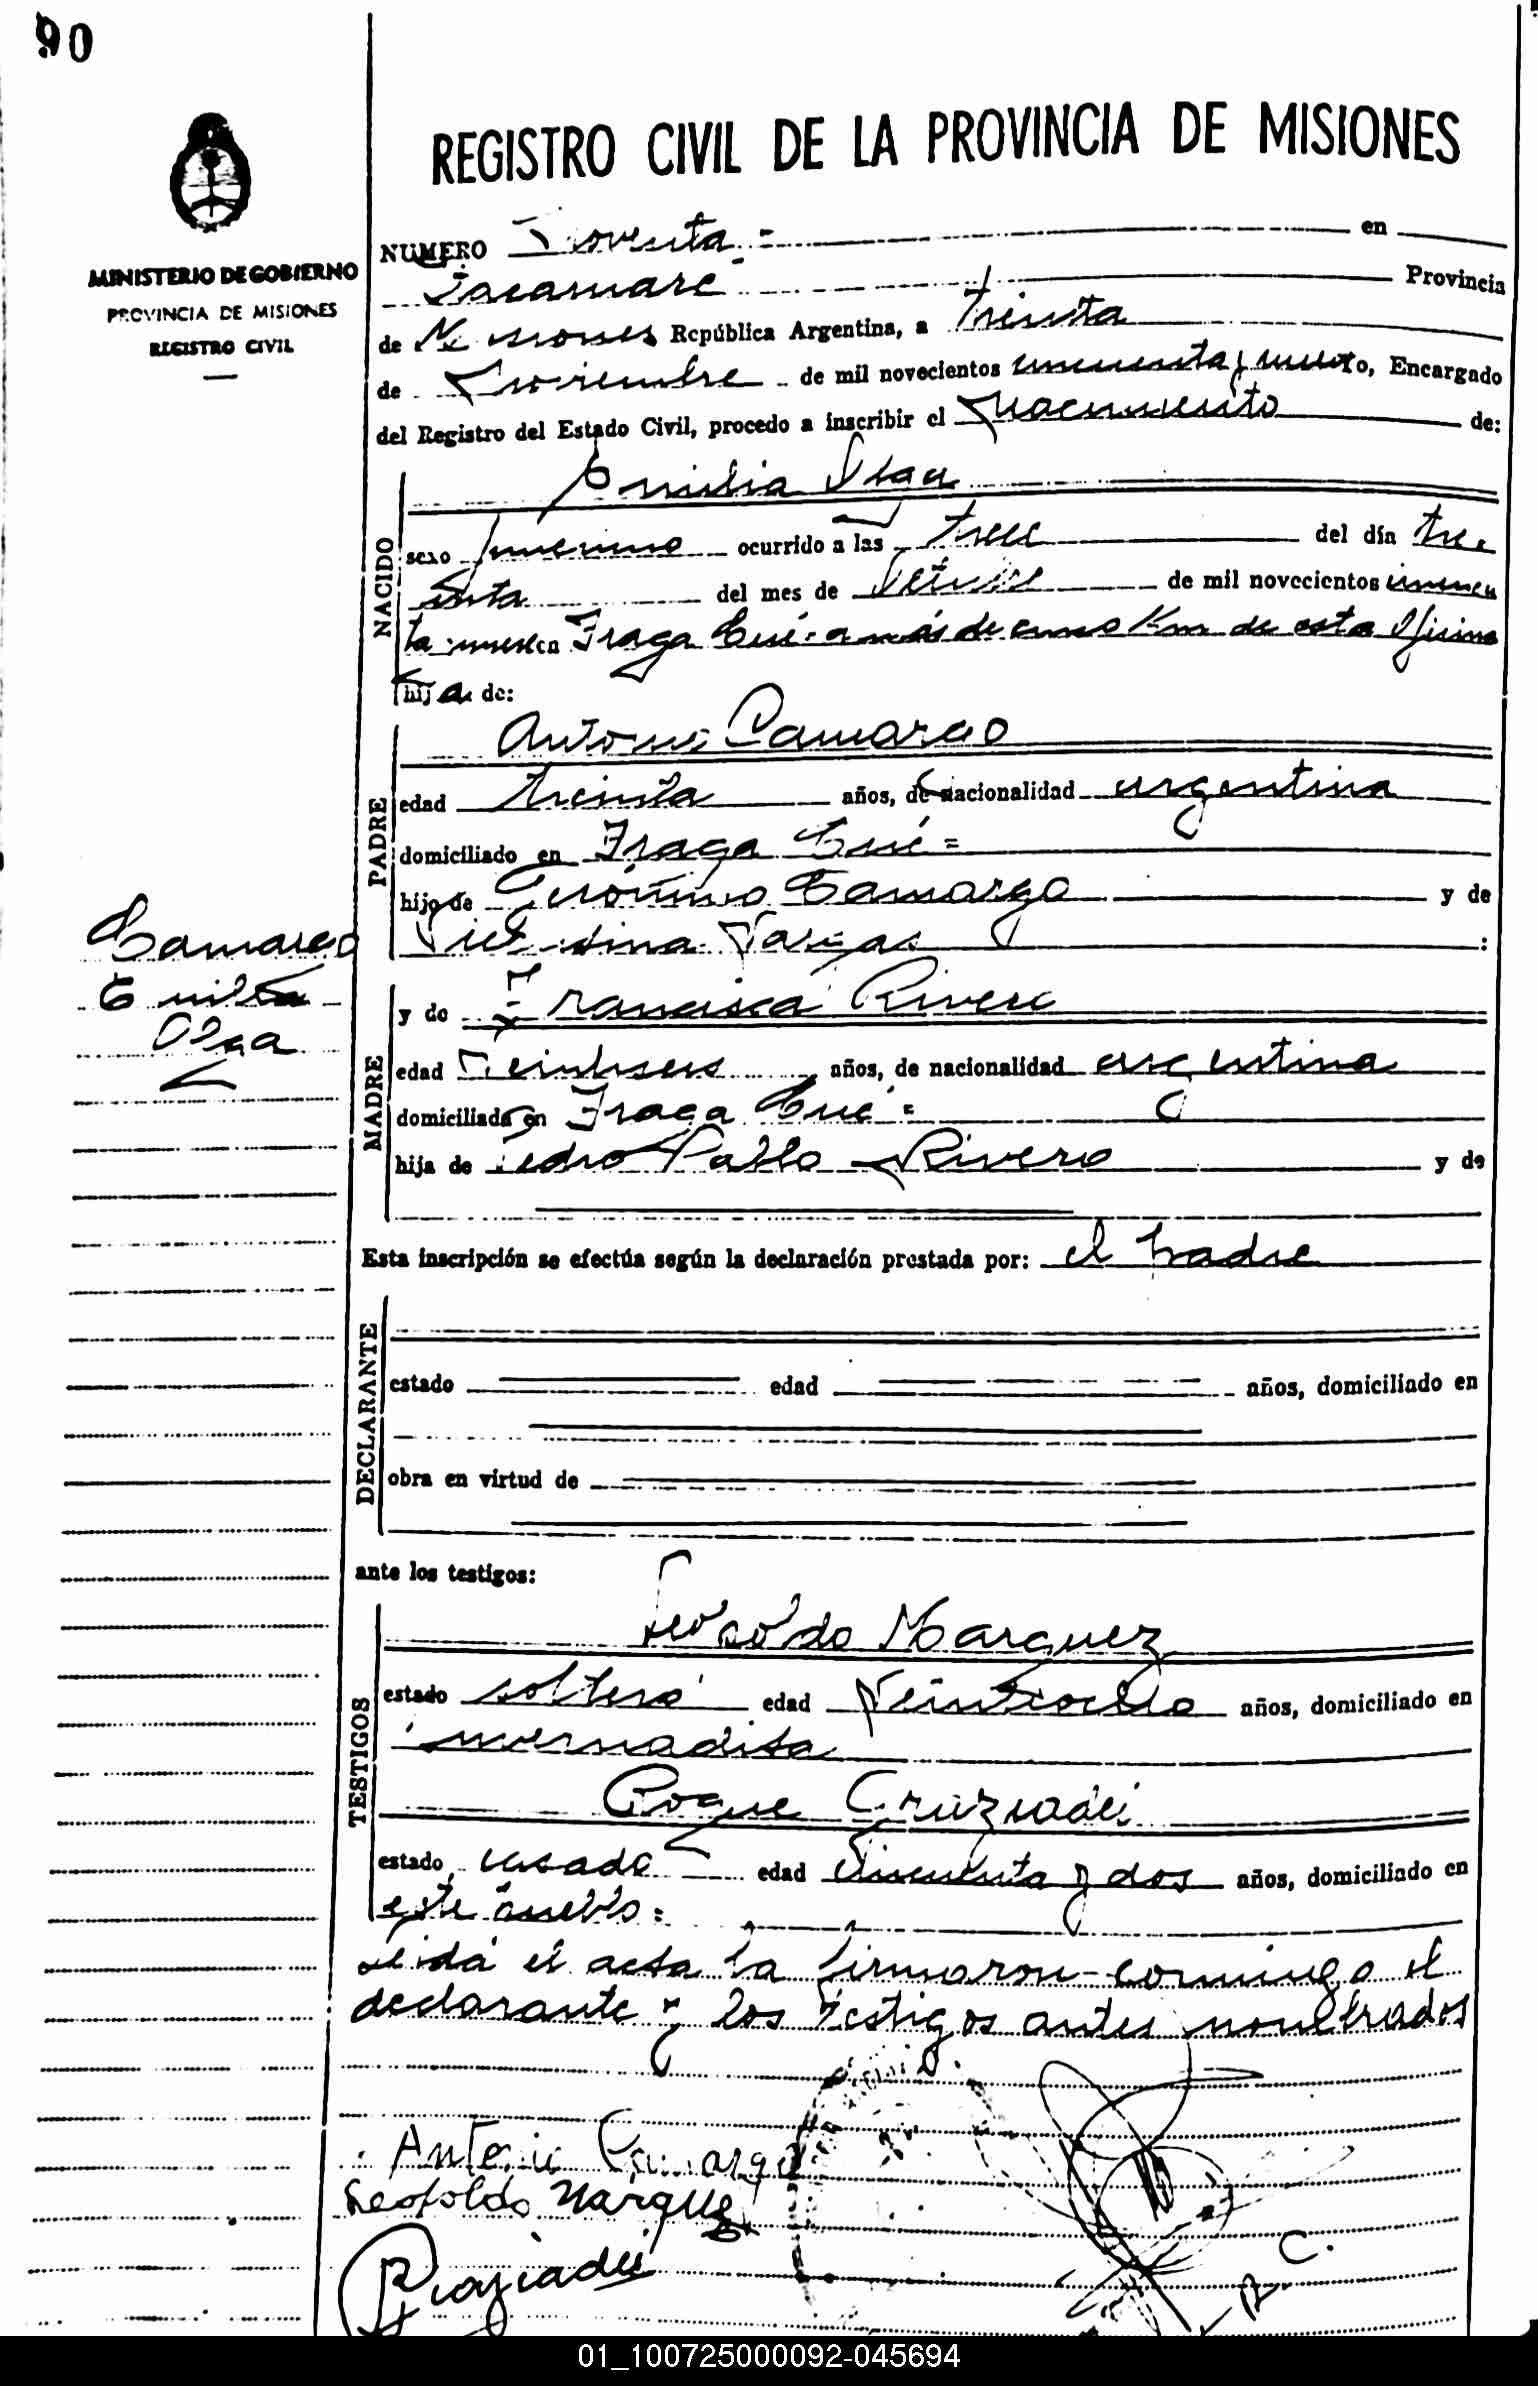 90
REGISTRO CIVIL DE LA PROVINCIA DE MISIONES
MINISTERIO DE GOBIERNO
PROVINCIA DE MISIONES
REGISTRO CIVIL
NUMERO Noventa = en
Provincia
de Misiones República Argentina, a treinta
de noviembre de mil novecientos cincuenta y nueve, Encargado
del Registro del Estado Civil, procedo a inscribir el Nacimiento de:
NACIDO
Emilia Olga
sexo femenino ocurrido a las trece del día tre
inta del mes de Octubre de mil novecientos cincuen
ta nueve en Fraga Cué a más de cinco Km de esta Oficina
hija de:
PADRE
Antonio Camargo
edad treinta años, de nacionalidad argentina
domiciliado en Fraga Cué =
hijo de Gerónimo Camargo y de
Vargas :
Camargo
Emilia
Olga
MADRE
y de Francisca Rivero
edad Veintiseis años, de nacionalidad argentina
domiciliada en Fraga Cué =
hija de Pedro Pablo Rivero y de
Esta inscripción se efectúa según la declaración prestada por: el padre
DECLARANTE
estado edad años, domiciliado en
obra en virtud de
ante los testigos:
TESTIGOS
Leopoldo Marquez
estado soltero edad Veintiocho años, domiciliado en
invernadita
Roque Graziadei
estado casado edad cincuenta y dos años, domiciliado en
este pueblo =
Leida el acta la firmaron conmigo el
declarante y los testigos antes nombrados
Antonio Camargo
Leopoldo Marquez
Graziadei
01_100725000092-045694